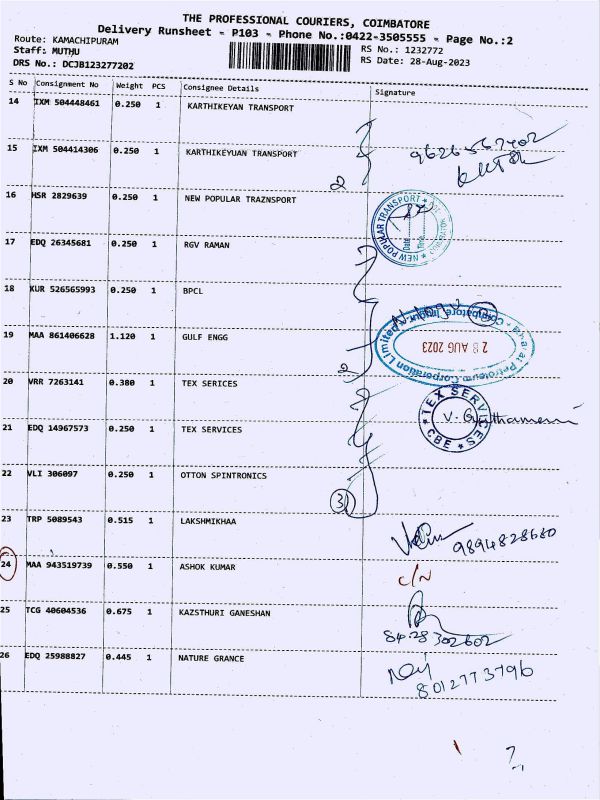 THE PROFESSIONAL COURIERS, COIMBATORE
Delivery Runsheet - P103 - Phone No.:0422-3505555 - Page No.:2
Route: KAMACHIPURAM
Staff: MUTHU
RS No.: 1232772
DRS No.: DCJB123277202
RS Date: 28-Aug-2023
S No Consignment No Weight PCS Consignee Details Signature
14 IXM 504448461 0.250 1 KARTHIKEYAN TRANSPORT
15 IXM 504414306 0.250 1 KARTHIKEYUAN TRANSPORT
2
16 HSR 2829639 0.250 1 NEW POPULAR TRAZNSPORT
NEW POPULAR TRANSPORT
Date
Time
17 EDQ 26345681 0.250 1 RGV RAMAN
18 KUR 526565993 0.250 1 BPCL
Bharat Petroleum Corporation Limited
28 AUG 2023
19 MAA 861406628 1.120 1 GULF ENGG
2
20 VRR 7263141 0.380 1 TEX SERICES
TEX SERVICES
CBE
21 EDQ 14967573 0.250 1 TEX SERVICES
22 VLI 306097 0.250 1 OTTON SPINTRONICS
3
23 TRP 5089543 0.515 1 LAKSHMIKHAA
9894828680
24 MAA 943519739 0.550 1 ASHOK KUMAR
C/N
25 TCG 40604536 0.675 1 KAZSTHURI GANESHAN
26 EDQ 25988827 0.445 1 NATURE GRANCE
8012773796